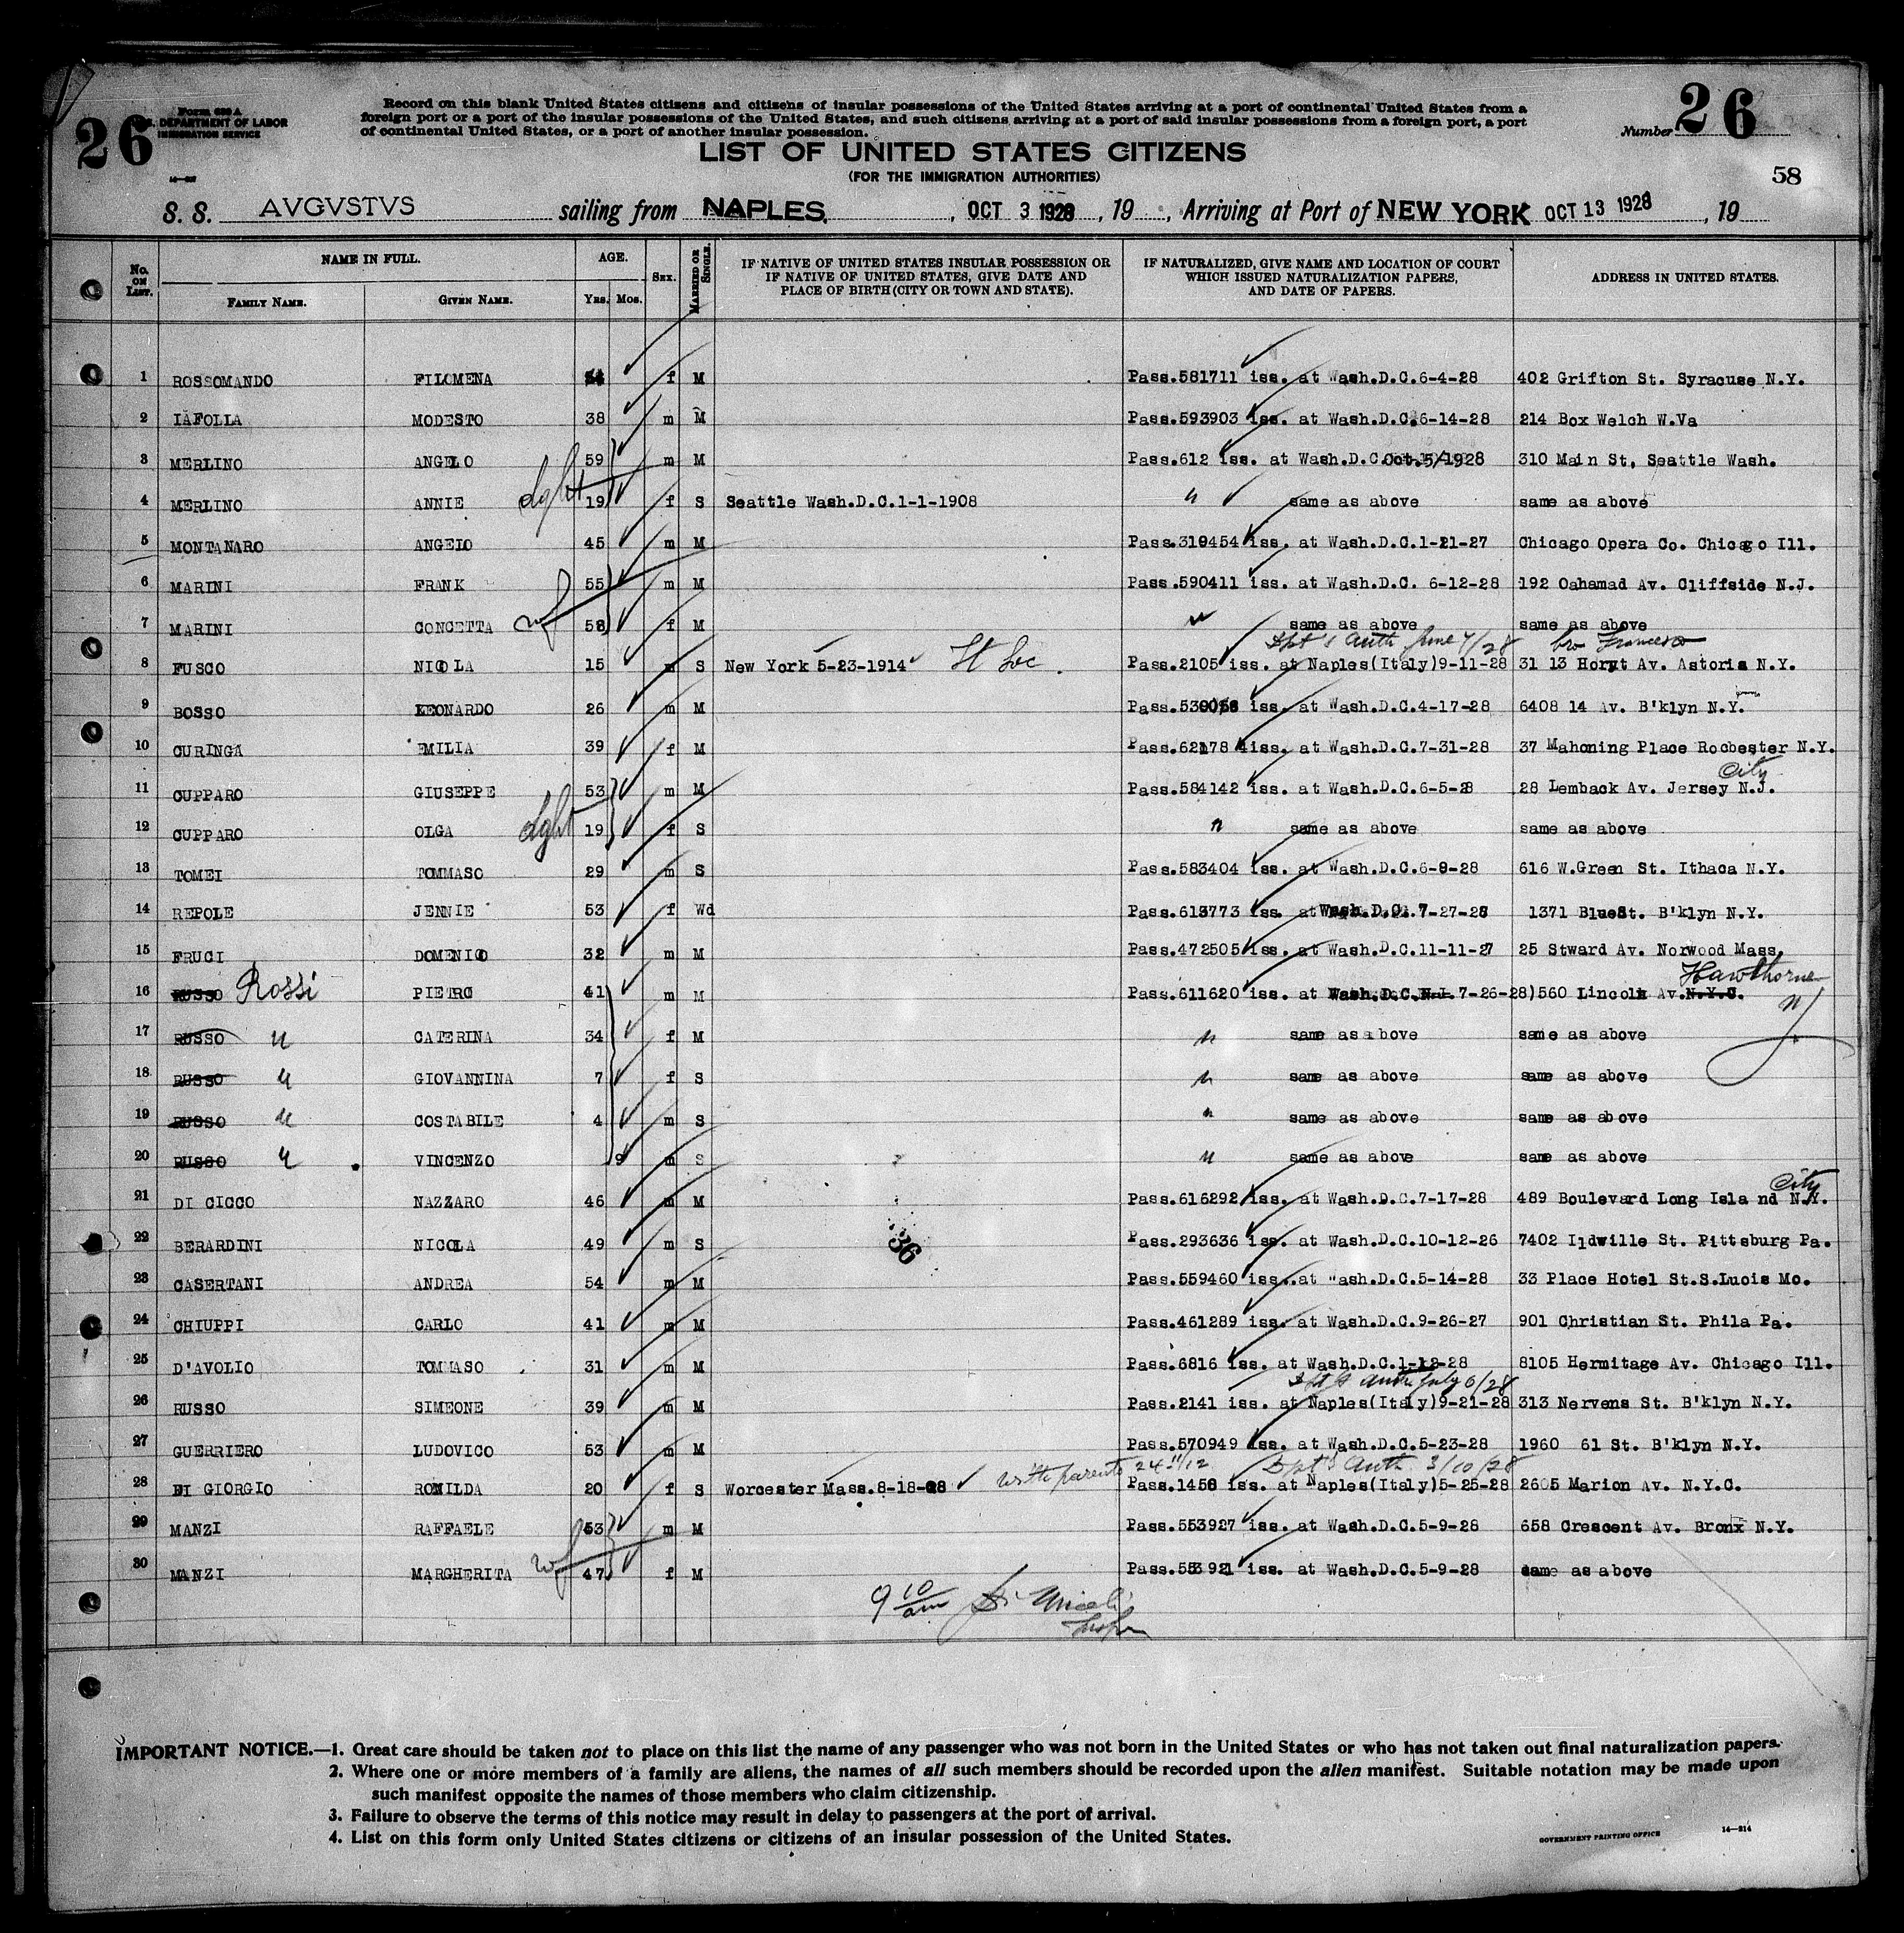 26
Form 630 A
U.S. DEPARTMENT OF LABOR
IMMIGRATION SERVICE
Record on this blank United States citizens and citizens of insular possessions of the United States arriving at a port of continental United States from a
foreign port or a port of the insular possessions of the United States, and such citizens arriving at a port of said insular possessions from a foreign port, a port
of continental United States, or a port of another insular possession.
Number 26
LIST OF UNITED STATES CITIZENS
(FOR THE IMMIGRATION AUTHORITIES)
58
S. S. AVGVSTVS sailing from NAPLES, OCT 3 1928, 19 , Arriving at Port of NEW YORK OCT 13 1928, 19
No. ON LIST. NAME IN FULL. FAMILY NAME. GIVEN NAME. AGE. YRS. MOS. SEX. MARRIED OR SINGLE. IF NATIVE OF UNITED STATES INSULAR POSSESSION OR IF NATIVE OF UNITED STATES, GIVE DATE AND PLACE OF BIRTH (CITY OR TOWN AND STATE). IF NATURALIZED, GIVE NAME AND LOCATION OF COURT WHICH ISSUED NATURALIZATION PAPERS, AND DATE OF PAPERS. ADDRESS IN UNITED STATES.
1 ROSSOMANDO FILOMENA f M Pass.581711 iss. at Wash.D.C.6-4-28 402 Grifton St. Syracuse N.Y.
2 IAFOLLA MODESTO 38 m M Pass.593903 iss. at Wash.D.C.6-14-28 214 Box Welch W.Va
3 MERLINO ANGELO 59 m M Pass.612 iss. at Wash.D.C.Oct.5/1928 310 Main St, Seattle Wash.
4 MERLINO ANNIE dght 19 f S Seattle Wash.D.C.1-1-1908 " same as above same as above
5 MONTANARO ANGELO 45 m M Pass.319454 iss. at Wash.D.C.1-21-27 Chicago Opera Co. Chicago Ill.
6 MARINI FRANK 55 m M Pass.590411 iss. at Wash.D.C. 6-12-28 192 Oahamad Av. Cliffside N.J.
7 MARINI CONCETTA wf 58 f M " same as above same as above
Dpt's Auth June 7/28 bro Francesco
8 FUSCO NICOLA 15 m S New York 5-23-1914 Pass.2105 iss. at Naples(Italy)9-11-28 31 13 Horyt Av. Astoria N.Y.
9 BOSSO LEONARDO 26 m M iss. at Wash.D.C.4-17-28 6408 14 Av. B'klyn N.Y.
10 CURINGA EMILIA 39 f M Pass.62178 iss. at Wash.D.C.7-31-28 37 Mahoning Place Rochester N.Y.
City
11 CUPPARO GIUSEPPE 53 m M Pass.584142 iss. at Wash.D.C.6-5-28 28 Lemback Av. Jersey N.J.
12 CUPPARO OLGA dght 19 f S " same as above same as above
13 TOMEI TOMMASO 29 m S Pass.583404 iss. at Wash.D.C.6-9-28 616 W.Green St. Ithaca N.Y.
14 REPOLE JENNIE 53 f Wd Pass.613773 iss at Wash.D.C. 7-27-28 1371 Blue St. B'klyn N.Y.
15 FRUCI DOMENICO 32 m M Pass.472505 iss. at Wash.D.C.11-11-27 25 Stward Av. Norwood Mass.
Hawthorne
16 RUSSO Rossi PIETRO 41 m M Pass.611620 iss. at Wash.D.C.N.J. 7-26-28) 560 Lincoln Av.N.Y.C. NJ
17 RUSSO " CATERINA 34 f M " same as above same as above
18 RUSSO " GIOVANNINA 7 f S " same as above same as above
19 RUSSO " COSTABILE 4 m S " same as above same as above
20 RUSSO " VINCENZO 9 m S " same as above same as above
City
21 DI CICCO NAZZARO 46 m M Pass.616292 iss. at Wash.D.C.7-17-28 489 Boulevard Long Isla nd N.Y.
36
22 BERARDINI NICOLA 49 m S Pass.293636 iss. at Wash.D.C.10-12-26 7402 Ildwille St. Pittsburg Pa.
23 CASERTANI ANDREA 54 m M Pass.559460 iss. at Wash.D.C.5-14-28 33 Place Hotel St.S.Luois Mo.
24 CHIUPPI CARLO 41 m M Pass.461289 iss. at Wash.D.C.9-26-27 901 Christian St. Phila Pa.
25 D'AVOLIO TOMMASO 31 m M Pass.6816 iss. at Wash.D.C.1-12-28 8105 Hermitage Av. Chicago Ill.
Dpt's Auth July 6/28
26 RUSSO SIMEONE 39 m M Pass.2141 iss. at Naples(Italy)9-21-28 313 Nervens St. B'klyn N.Y.
27 GUERRIERO LUDOVICO 53 m M Pass.570949 iss. at Wash.D.C.5-23-28 1960 61 St. B'klyn N.Y.
with parents 24 11/12 Dpt's Auth 3/10/28
28 DI GIORGIO ROMILDA 20 f S Worcester Mass.8-18-08 Pass.1458 iss. at Naples(Italy)5-25-28 2605 Marion Av. N.Y.C.
29 MANZI RAFFAELE 53 m M Pass.553927 iss. at Wash.D.C.5-9-28 658 Crescent Av. Bronx N.Y.
30 MANZI MARGHERITA wf 47 f M Pass.553921 iss. at Wash.D.C.5-9-28 same as above
9 10 am
IMPORTANT NOTICE.—1. Great care should be taken not to place on this list the name of any passenger who was not born in the United States or who has not taken out final naturalization papers.
2. Where one or more members of a family are aliens, the names of all such members should be recorded upon the alien manifest. Suitable notation may be made upon
such manifest opposite the names of those members who claim citizenship.
3. Failure to observe the terms of this notice may result in delay to passengers at the port of arrival.
4. List on this form only United States citizens or citizens of an insular possession of the United States.
GOVERNMENT PRINTING OFFICE 14—214